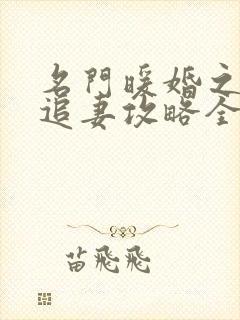 名門暖婚之
追妻攻略全
苗飛飛